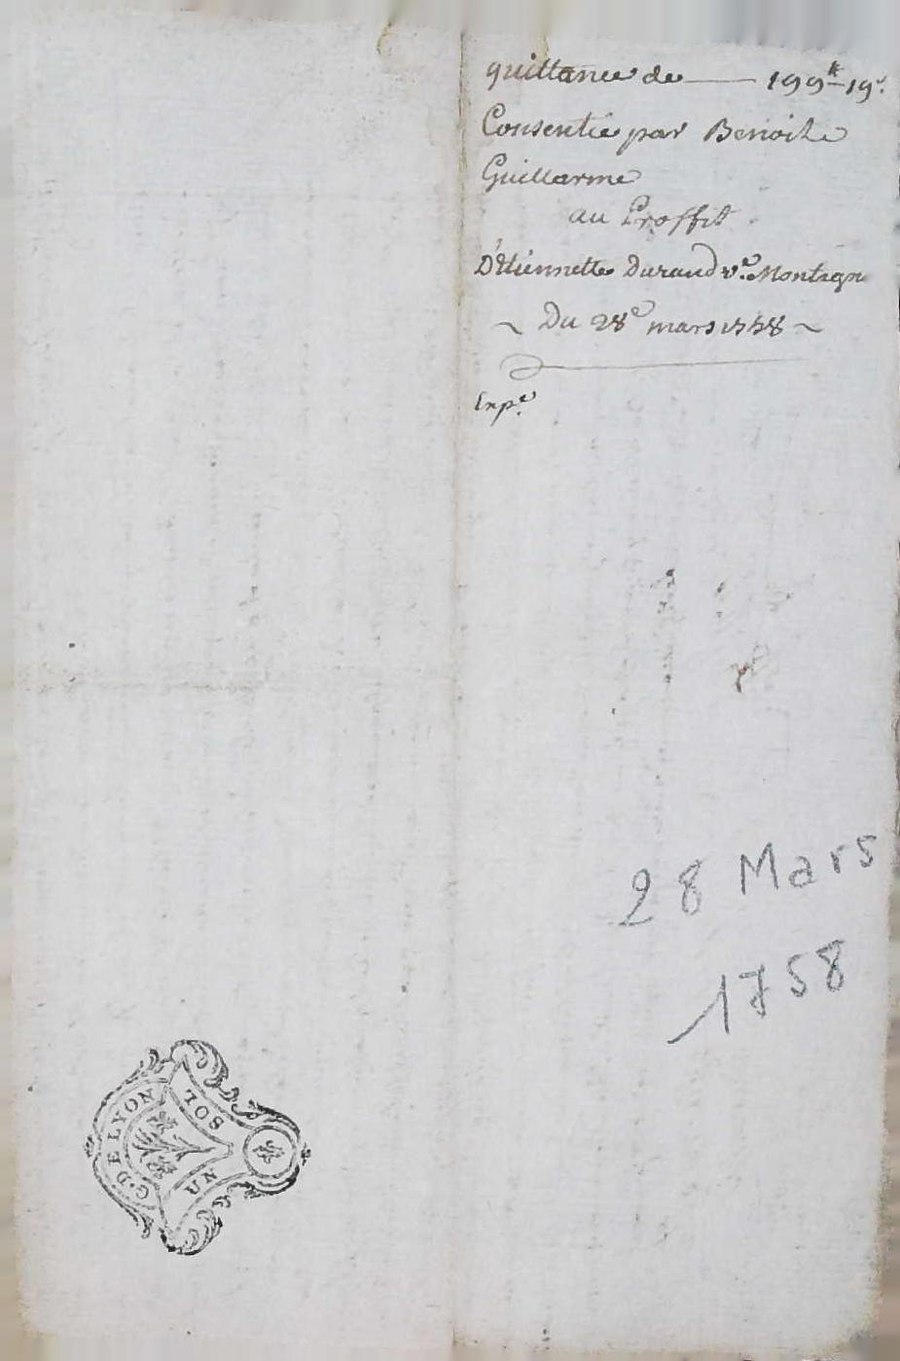 quittance de — 199 ₶ 19 s.
Consentie par Benoite
Guillarme
au Proffit
D'Etiennette Durand ve. Montagn
~ Du 28e mars 1758 ~
Expe.
28 Mars
1758
G. DE LYON
UN SOL